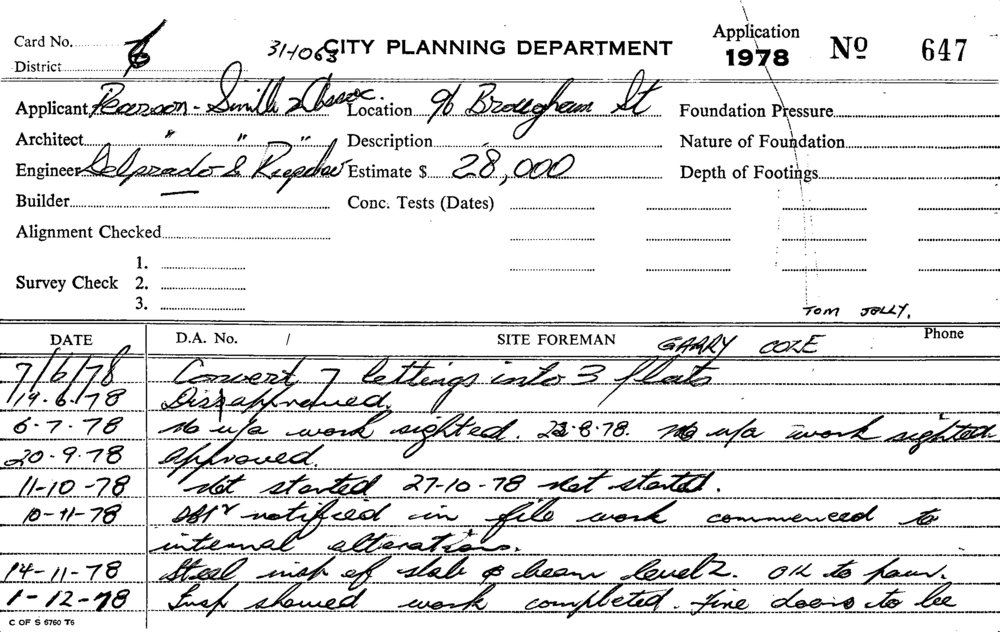 Card No. 6
31-1063 CITY PLANNING DEPARTMENT
Application
1978 No 647
District
Applicant Pearson - Smith & Assoc. Location 96 Brougham St Foundation Pressure
Architect " " " Description Nature of Foundation
Engineer Delprado & Estimate $ 28,000 Depth of Footings
Builder Conc. Tests (Dates)
Alignment Checked
1.
Survey Check 2.
3.
TOM JOLLY.
DATE D.A. No. / SITE FOREMAN GARRY COLE Phone
7/6/78 Convert 7 lettings into 3 flats
14.6.78 Dissapproved.
6.7.78 No u/a work sighted. 23.8.78. No u/a work sighted
20.9.78 Approved.
11-10-78 Not started 27-10-78 Not started.
10-11-78 notified in file work commenced to
internal alterations.
14-11-78 Steel insp of slab & beam level 2. OK to pour.
1-12-78 Insp showed work completed. Fire doors to be
C OF S 6760 T6